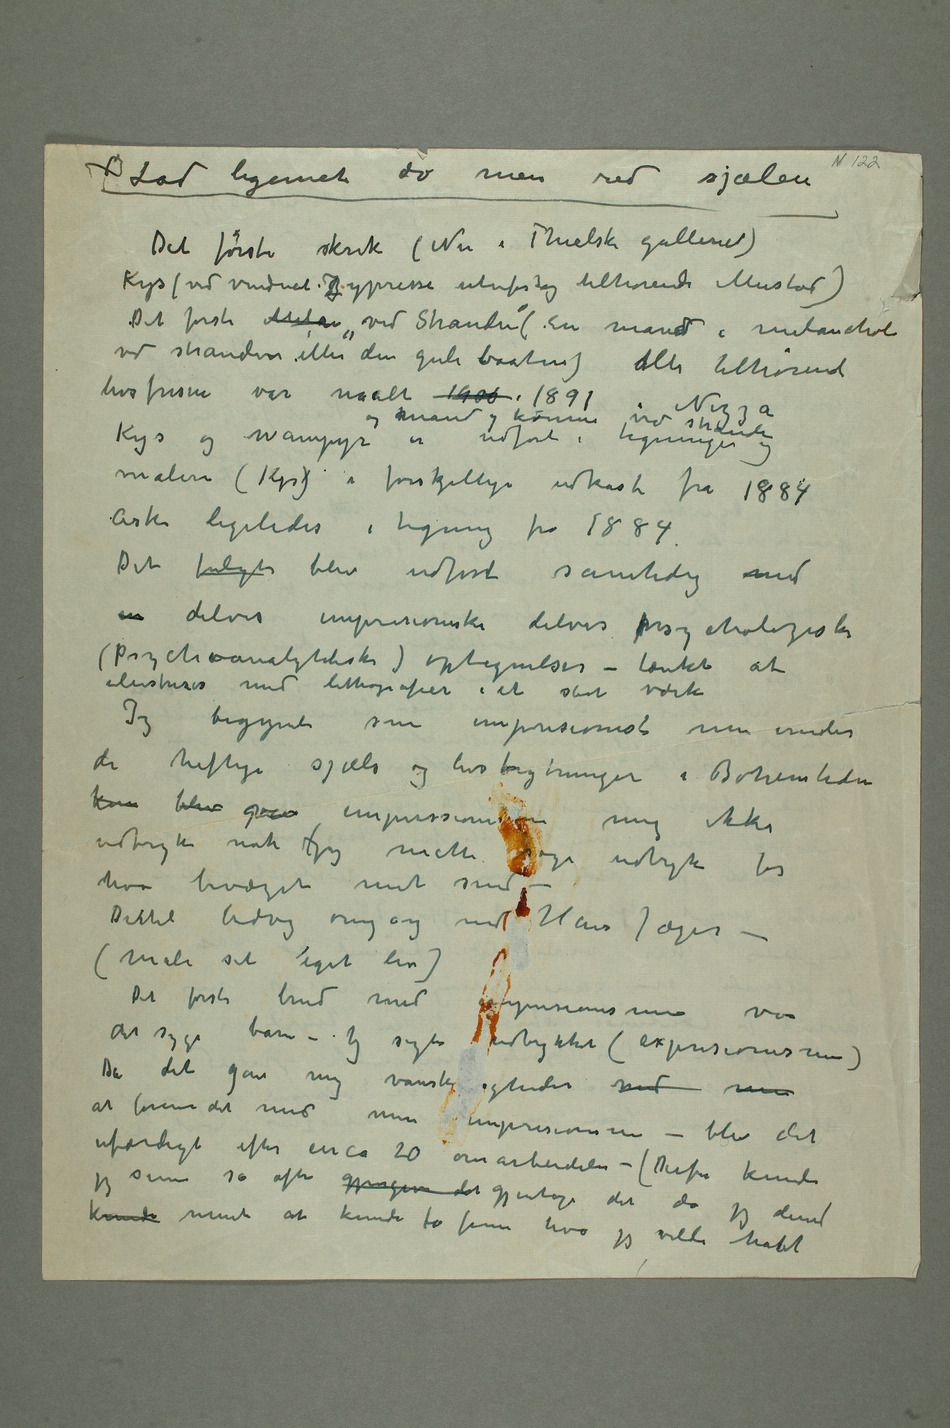 N 122
Lad legemet dø men red sjælen
Det første skrik (Nu i Thielska galleriet)
Kys (ved vinduet. Zypresse udenfor tilhørende Mustad)
Det første Melan „ved Stranden“ (En mand i melankoli
ved stranden eller den gule baaten) Alle tilhørend
livsfrisen var malt 1908 i 1891 i Nizza
og mand og kvinne ved stranden
Kys og wampyr er udført i tegninger og
maleri (Kys) i forskjellige udkast fra 1884
Aske ligeledes i tegning fra 1884.
Det fulgte blev udført samtidig med
en delvis impresioniske delvis psychologiske
(psychoanalytiske) optegnelser – tænkt at
ilustreres med lithografier i et stort værk
Jeg begynte som impresionist men under
de heftige sjæls og livsbrytninger i Bohemtiden
kom blev gav impressionismen mig ikke
udtryk nok – Jeg matte søge udtryk for
hva bevæget mit sind –
Dertil bidrog omgang med Hans Jæger –
(male sit eget liv)
Det første brud med impresionismen var
det syge barn – Jeg søgte udtrykket (expresionismen)
Da det gav mig vanskeligheder med min
at forene det med min impresionisme – blev det
ufærdigt efter circa 20 omarbeidelser – (Derfor kunde
jeg senere så ofte gjengive det gjentage det da jeg derved
kunde mente at kunde få frem hva jeg vilde havt